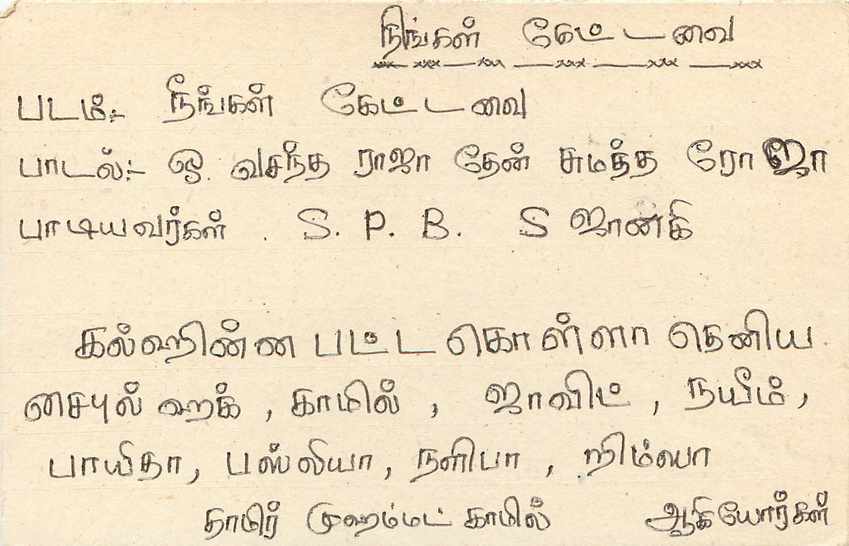 நீங்கள் கேட்டவை
படம்:- நீங்கள் கேட்டவை
பாடல்:- ஓ. வசந்த ராஜா தேன் சுமந்த ரோஜா
பாடியவர்கள் . S. P. B. S ஜானகி
கல்ஹின்ன பட்டகொள்ளா தெனிய
சைபுல் ஹக், காமில், ஜாவிட், நயீம்,
பாயிதா, பஸ்லியா, நளிபா, றிம்ஸா
தாமிர் முஹம்மட் காமில் ஆகியோர்கள்